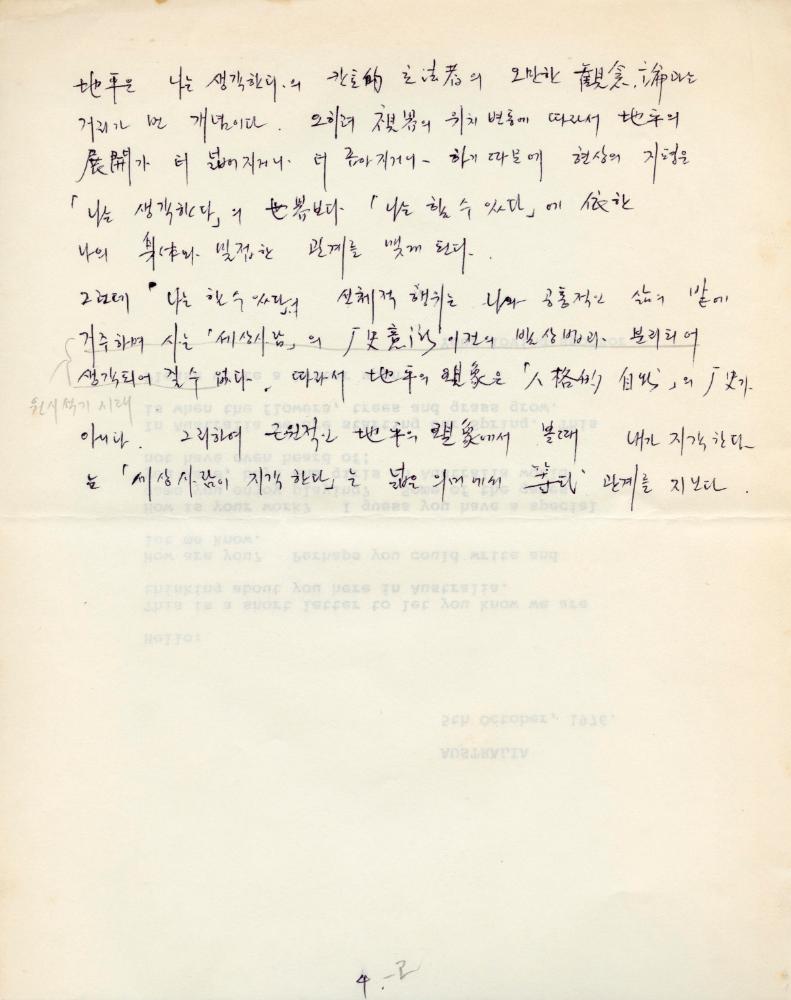 地平은 나는 생각한다.의 칸트的 立法者의 오만한 觀念論과는
거리가 먼 개념이다. 오히려 視界의 위치 변동에 따라서 地平의
展開가 더 넓어지거나 더 좁아지거나 하기 때문에 현상의 지평은
「나는 생각한다」의 世界보다 「나는 할 수 있다」에 依한
나의 身体와 밀접한 관계를 맺게 된다.
그런데 「나는 할 수 있다」의 신체적 행위는 나와 공통적인 삶의 밭에
거주하며 사는 「세상사람」의 歷史意識 이전의 발상법과 분리되어
생각되어 질 수 없다. 따라서 地平의 現象은 「人格的 自我」의 歷史가
원시적기 시대
아니다. 그리하여 근원적인 地平의 現象에서 볼때 내가 지각한다
는 「세상사람이 지각한다」는 넓은 의미에서 관계를 지닌다.
is when the flowers, trees and grass grow.
not have even heard of!
How is your work? I guess you have a special
let me know.
How are you? Perhaps you could write and
thinking about you here in Australia.
This is a short letter to let you know we are
Hello!
5th October, 1976.
AUSTRALIA
4